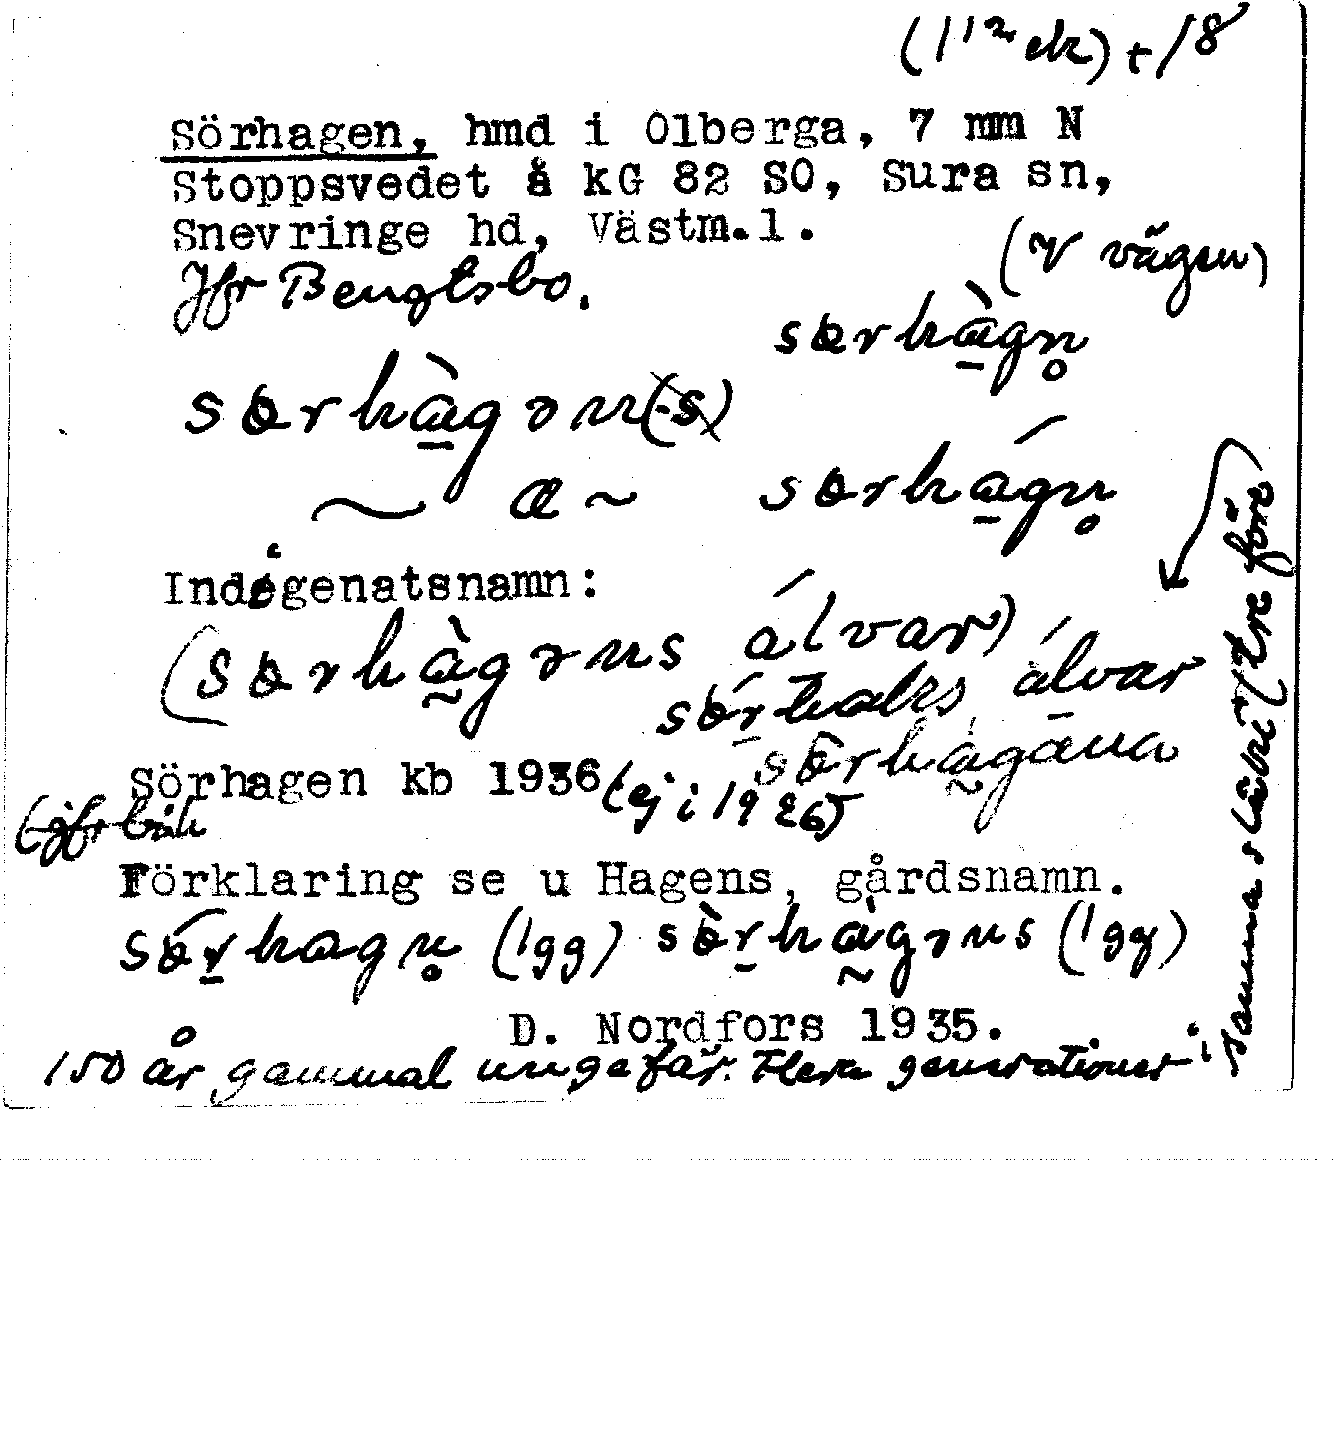 (1 12 ek) + 18
Sörhagen, hmd i Olberga, 7 mm N
Stoppsvedet å kG 82 SO, Sura sn,
Snevringe hd, Västm.l.
(V vägen)
Jfr Bengtsbo.
sɵrhàgn̥
sɵrhàgən(-s)
~ a ~ sɵrhágn̥
Indigenatsnamn:
(sɵrhàgəns álvar)
álvar
Sörhagen kb 1936 (ej i 1926)
(jfr
Förklaring se u Hagens, gårdsnamn.
sɵ́rhagn̥ (1gg) sɵ̀rhàgəns (1gg)
D. Nordfors 1935.
150 år gammal ungefär. Flera generationer i
samma (tre före